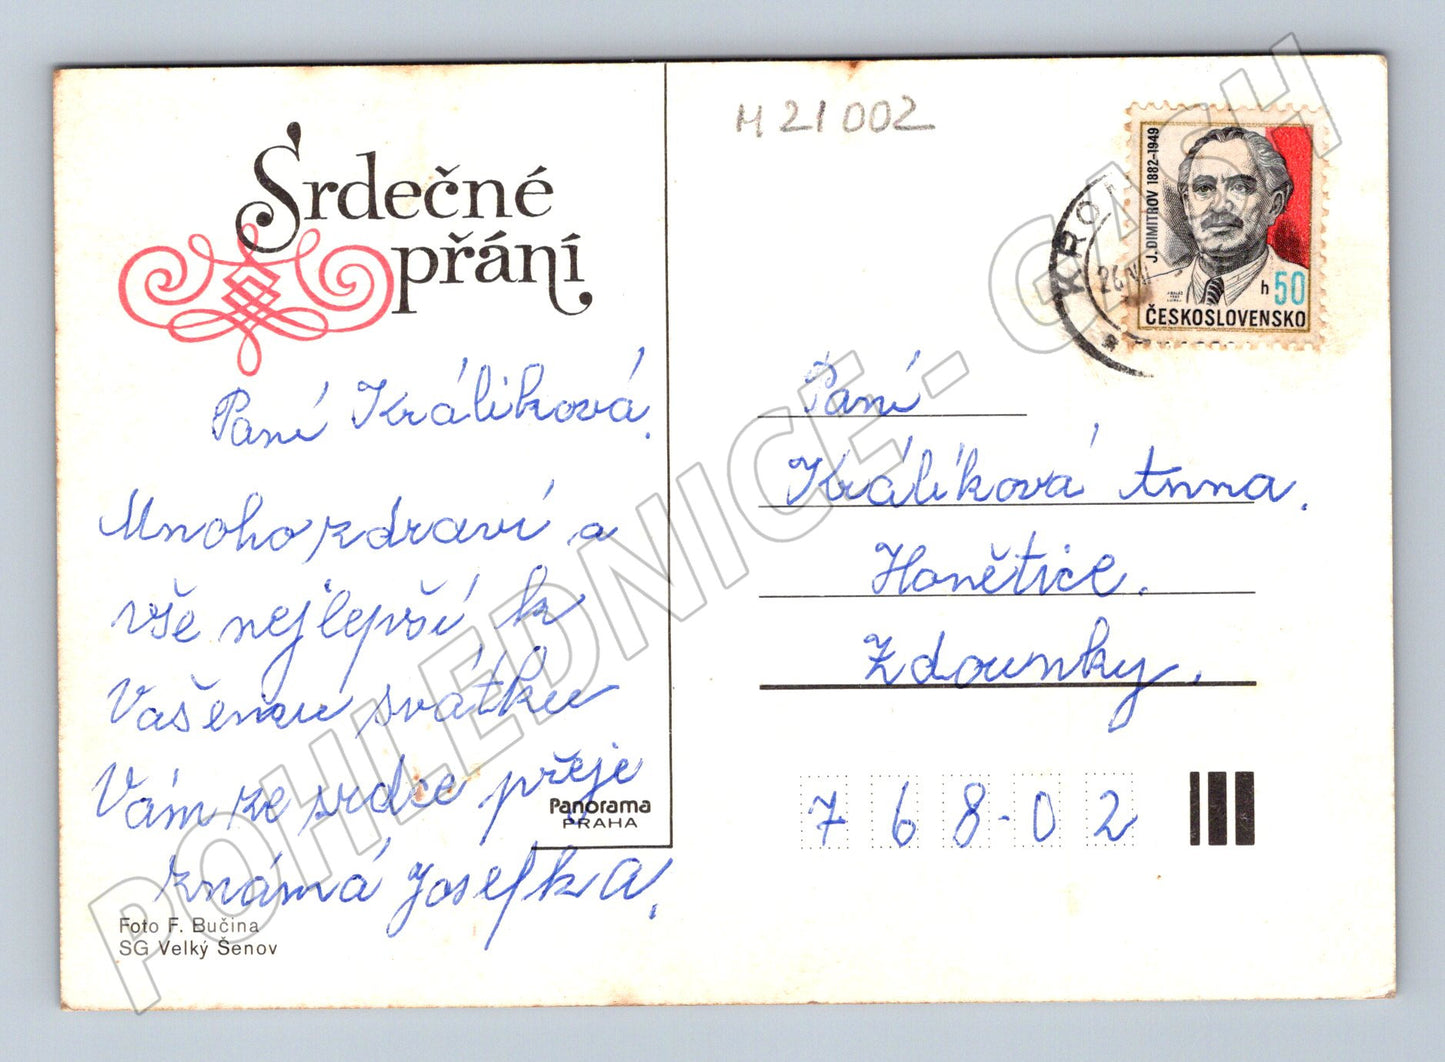 Srdečné
přání
Paní Králiková.
Mnoho zdraví a
vše nejlepší, k
Vašemu svátku
Vám ze srdce přeje
známá Josefka.
Panorama
PRAHA
Foto F. Bučina
SG Velký Šenov
M 21 002
J. DIMITROV 1882-1949
h 50
ČESKOSLOVENSKO
KRO
Paní
Králíková Anna.
Honětice.
Zdounky.
768-02
POHLEDNICE - CASH